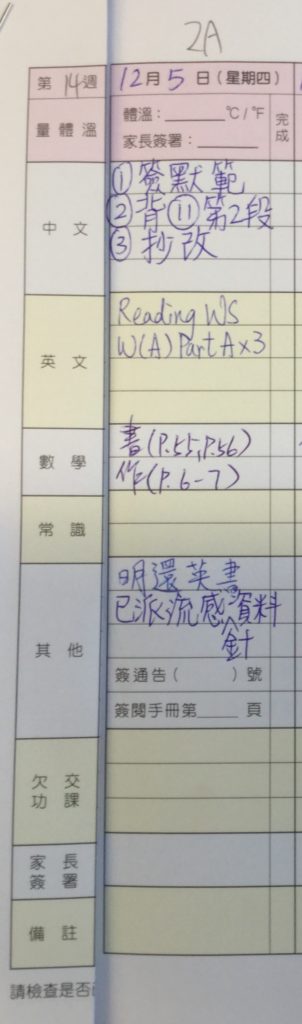 2A
第14週 12月5日(星期四)
量體溫 體溫:______°C/°F 完成
家長簽署:______
中文 ①簽默範
②背⑪第2段
③抄改
英文 Reading WS
W(A) Part A x 3
數學 書(P.55,P.56)
作(P.6-7)
常識
其他 明還英書
已派流感針資料
簽通告( )號
簽閱手冊第____頁
欠交功課
家長簽署
備註
請檢查是否